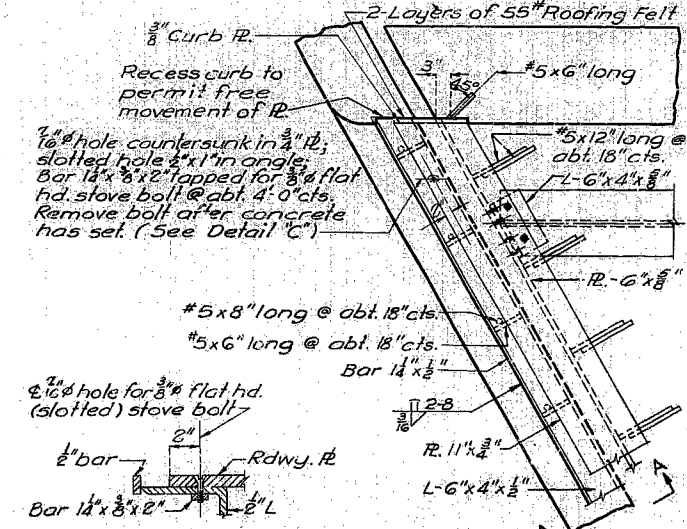 2-Layers of 55# Roofing Felt
3/8" Curb PL.
Recess curb to
permit free
movement of PL.
3"
45°
#5x6" long
7/16"ø hole countersunk in 3/4" PL;
slotted hole 1/2"x1" in angle;
Bar 1 1/4"x 3/8"x2" tapped for 3/8"ø flat
hd. stove bolt @ abt. 4'-0"cts.
Remove bolt after concrete
has set. (See Detail "C")
#5x12" long @
abt. 18"cts.
L-6"x4"x 5/8"
PL.-6"x 5/8"
#5x8" long @ abt. 18"cts.
#5x6" long @ abt. 18"cts.
Bar 1 1/4"x 1/2"
3/16 2-8
PL. 11"x 3/4"
L-6"x4"x 1/2"
A
℄ 7/16"ø hole for 3/8"ø flat hd.
(slotted) stove bolt
2"
1/2" bar
Rdwy. PL
Bar 1 1/4"x 3/8"x2"
1/2" L